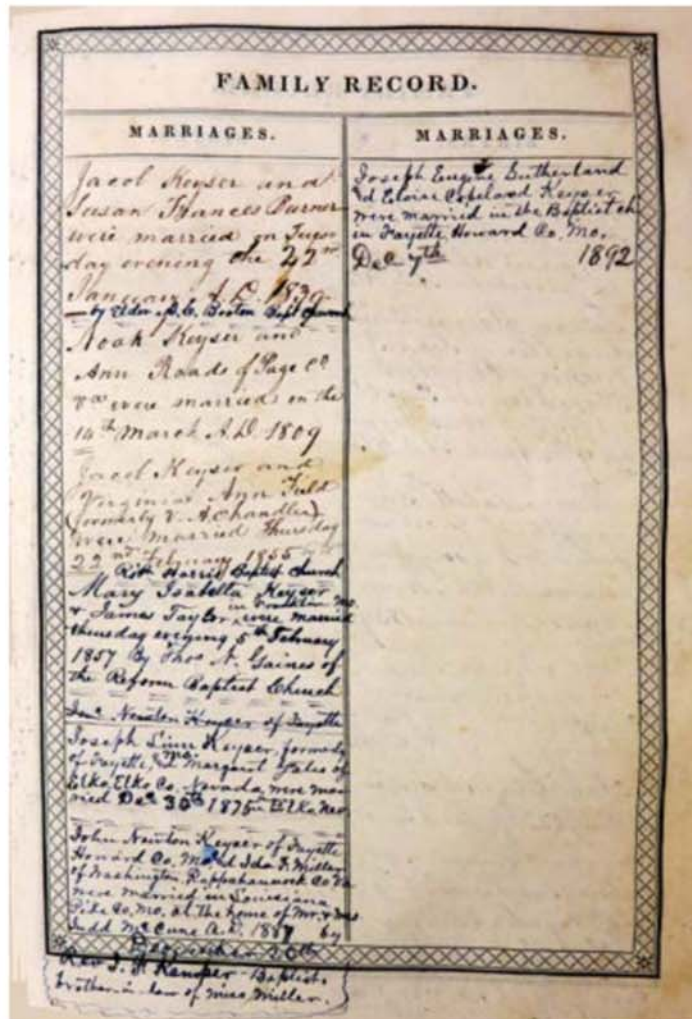 FAMILY RECORD.
MARRIAGES.
Jacob Keyser and
Susan Frances Burner
were married on Tues
day evening the 22nd
January A.D. 1839
by Elder A. C. Booton Bapt Church
Noah Keyser and
Ann Roads of Page Co
Va were married on the
14th March A.D. 1809
Jacob Keyser and
Virginia Ann Field
(formerly V. A. Chandler)
were married Thursday
22nd February 1855
Robt Harris Baptist Church
Mary Isabella Keyser
& James Taylor were married
in Mo.
thursday evening 5th February
1857 By Thos N. Gaines of
the Reform Baptist Church
Jno Newton Keyser of Fayette
Joseph Linn Keyser, formerly
of Fayette, Mo. & Margaret Yales of
Elko, Elko Co. Nevada, were mar
ried Dec 30th 1875 in Elko, Nev.
John Newton Keyser of Fayette
Howard Co. Mo. & Ida F. Miller
of Washington, Rappahannock Co Va
were married in Louisiana
Pike Co. Mo. at the home of Mr. & Mrs
Judd McCune A.D. 1887 by
Rev J. Kemper - Baptist.
brother-in-law of Miss Miller.
MARRIAGES.
Joseph Eugene Sutherland
&d Eloise Copeland Keyser
were married in the Baptist ch
in Fayette Howard Co. Mo.
Dec 7th 1892